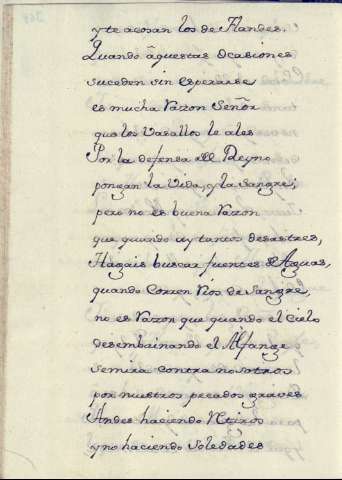 y te acosan los de Flandes.
Quando âquestas ocasiones
suceden sin esperarse
es mucha Razon Señor
que los Vasallos leales
Por la defensa del Reyno
pongan la Vida, y la Sangre;
pero no es buena Razon
que quando ay tantos desastres,
Hagais buscar fuentes de Aguas,
quando Corren Rios de Sangre,
no es Razon que quando el Cielo
desembainando el Alfange
se mira contra nosotros
por nuestros pecados graves
Andes haciendo Retiros
y no haciendo Soledades